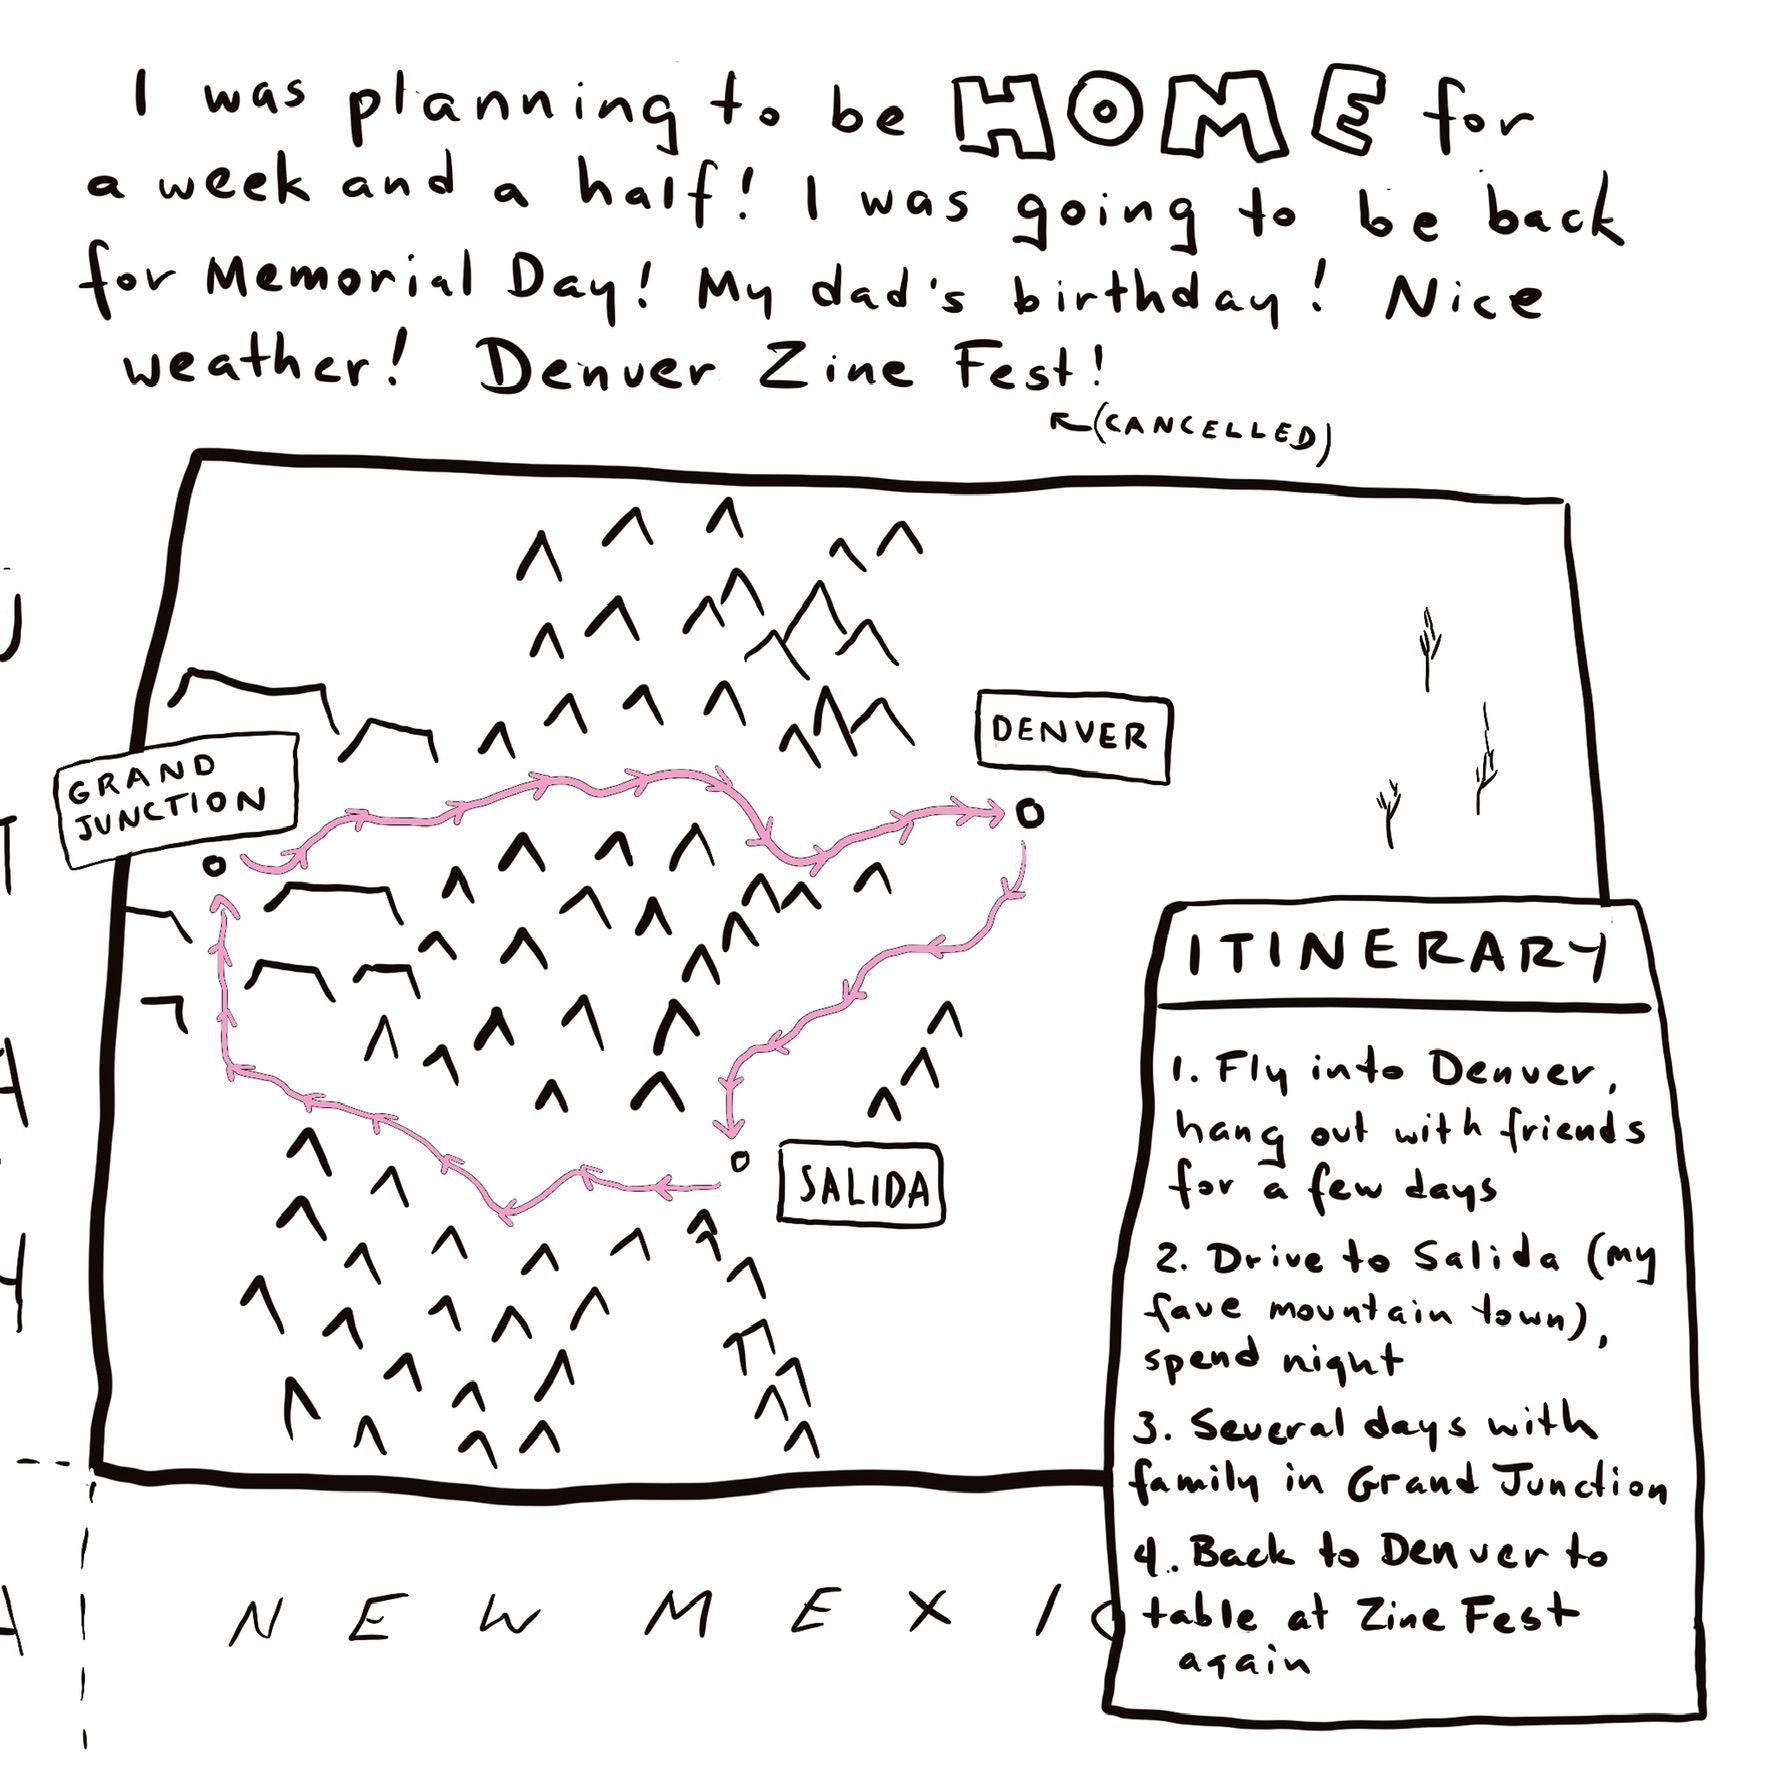 I was planning to be HOME for
a week and a half! I was going to be back
for Memorial Day! My dad's birthday! Nice
weather! Denver Zine Fest!
(CANCELLED)
DENVER
GRAND
JUNCTION
SALIDA
ITINERARY
1. Fly into Denver,
hang out with friends
for a few days
2. Drive to Salida (my
fave mountain town),
spend night
3. Several days with
family in Grand Junction
4. Back to Denver to
table at Zine Fest
again
NEW MEXIC